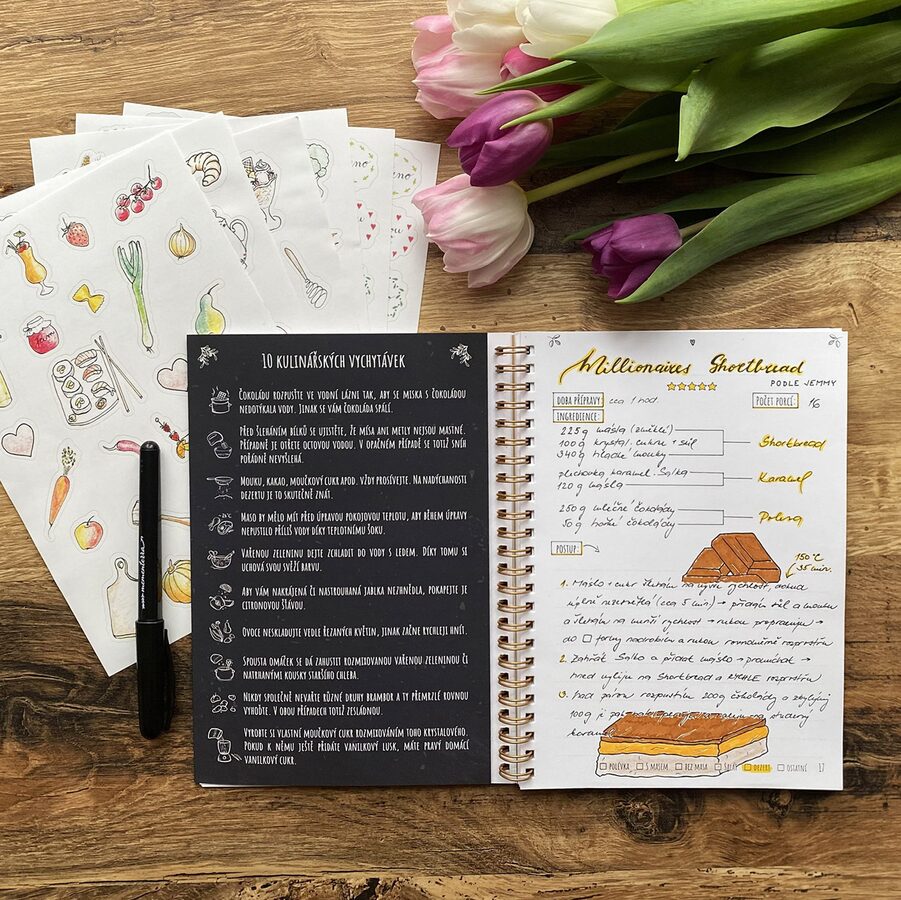 10 KULINÁŘSKÝCH VYCHYTÁVEK
ČOKOLÁDU ROZPUSŤTE VE VODNÍ LÁZNI TAK, ABY SE MISKA S ČOKOLÁDOU
NEDOTÝKALA VODY. JINAK SE VÁM ČOKOLÁDA SPÁLÍ.
PŘED ŠLEHÁNÍM BÍLKŮ SE UJISTĚTE, ŽE MÍSA ANI METLY NEJSOU MASTNÉ.
PŘÍPADNĚ JE OTŘETE OCTOVOU VODOU. V OPAČNÉM PŘÍPADĚ SE TOTIŽ SNÍH
POŘÁDNĚ NEVYŠLEHÁ.
MOUKU, KAKAO, MOUČKOVÝ CUKR APOD. VŽDY PROSÍVEJTE. NA NADÝCHANOSTI
DEZERTU JE TO SKUTEČNĚ ZNÁT.
MASO BY MĚLO MÍT PŘED ÚPRAVOU POKOJOVOU TEPLOTU, ABY BĚHEM ÚPRAVY
NEPUSTILO PŘÍLIŠ VODY DÍKY TEPLOTNÍMU ŠOKU.
VAŘENOU ZELENINU DEJTE ZCHLADIT DO VODY S LEDEM. DÍKY TOMU SI
UCHOVÁ SVOU SVĚŽÍ BARVU.
ABY VÁM NAKRÁJENÁ ČI NASTROUHANÁ JABLKA NEZHNĚDLA, POKAPEJTE JE
CITRONOVOU ŠŤÁVOU.
OVOCE NESKLADUJTE VEDLE ŘEZANÝCH KVĚTIN, JINAK ZAČNE RYCHLEJI HNÍT.
SPOUSTA OMÁČEK SE DÁ ZAHUSTIT ROZMIXOVANOU VAŘENOU ZELENINOU ČI
NATRHANÝMI KOUSKY STARŠÍHO CHLEBA.
NIKDY SPOLEČNĚ NEVAŘTE RŮZNÉ DRUHY BRAMBOR A TY PŘEMRZLÉ ROVNOU
VYHOĎTE. V OBOU PŘÍPADECH TOTIŽ ZESLÁDNOU.
VYROBTE SI VLASTNÍ MOUČKOVÝ CUKR ROZMIXOVÁNÍM TOHO KRYSTALOVÉHO.
POKUD K NĚMU JEŠTĚ PŘIDÁTE VANILKOVÝ LUSK, MÁTE PRAVÝ DOMÁCÍ
VANILKOVÝ CUKR.
Millionaires Shortbread
PODLE JEMMY
DOBA PŘÍPRAVY: cca 1 hod. POČET PORCÍ: 16
INGREDIENCE:
225 g másla (změklé)
100 g krystal. cukru + sůl
340 g hladké mouky
Shortbread
plechovka karamel. Salka
120 g másla
Karamel
250 g mléčné čokolády
50 g hořké čokolády
Poleva
POSTUP:
150 °C
35 min.
1. Máslo + cukr šlehám na vyšší rychlost, dokud
(cca 5 min) → přidám sůl a mouku
a šlehám na menší rychlost → rukou propracuju →
do formy nadrobím a rukou rovnoměrně rozprostřu
2. Zahřát Salko a přidat máslo → promíchat →
hned vyliju na Shortbread a RYCHLE rozprostřu
3. Nad párou rozpustím 200g čokolády a zbylých
100g
karamel
POLÉVKA S MASEM BEZ MASA SALÁT DEZERT OSTATNÍ 17